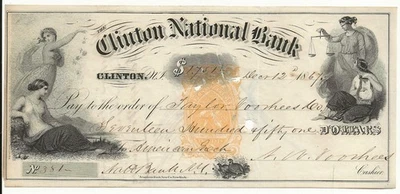 Clinton National Bank
CLINTON, N.J. $1751 Decr 12th 1867
Pay to the order of Taylor Voorhees & Co
Seventeen Hundred & fifty one DOLLARS
To American Exch
Natl Bank N.Y. N. W. Voorhees
Cashier